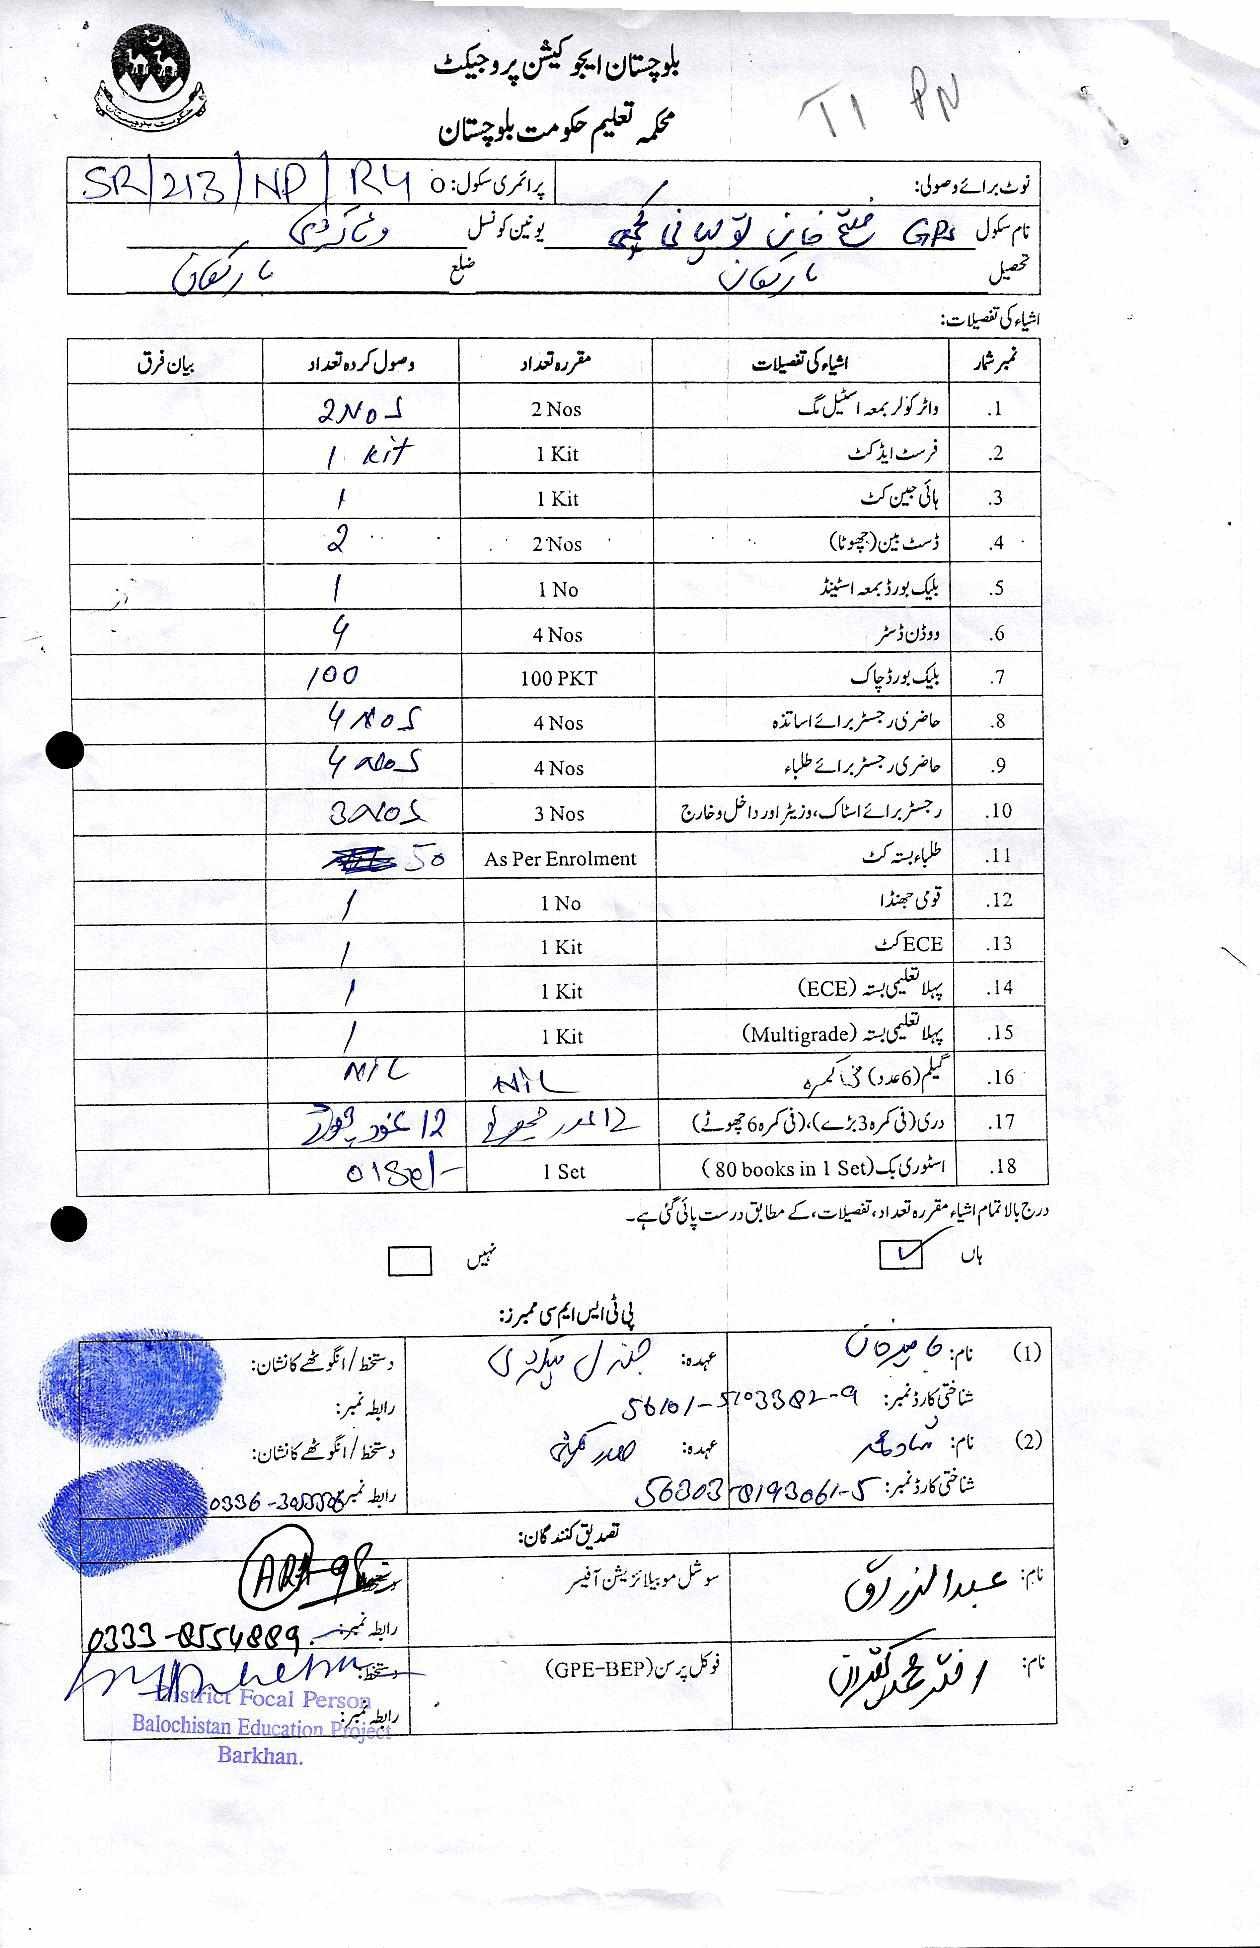 بلوچستان ایجوکیشن پروجیکٹ
محکمہ تعلیم حکومت بلوچستان
T1 PN
نوٹ برائے وصولی: پرائمری سکول: 0 SR/213/NP/R4
نام سکول GPS فتح خان یونین کونسل
تحصیل بارکھان ضلع بارکھان
اشیاء کی تفصیلات:
نمبر شمار اشیاء کی تفصیلات مقررہ تعداد وصول کردہ تعداد بیان فرق
1. واٹر کولر بمعہ اسٹیل مگ 2 Nos 2 Nos
2. فرسٹ ایڈ کٹ 1 Kit 1 Kit
3. ہائی جین کٹ 1 Kit 1
4. ڈسٹ بین (چھوٹا) 2 Nos 2
5. بلیک بورڈ بمعہ اسٹینڈ 1 No 1
6. ووڈن ڈسٹر 4 Nos 4
7. بلیک بورڈ چاک 100 PKT 100
8. حاضری رجسٹر برائے اساتذہ 4 Nos 4 Nos
9. حاضری رجسٹر برائے طلباء 4 Nos 4 Nos
10. رجسٹر برائے اسٹاک، وزیٹر اور داخل و خارج 3 Nos 3 Nos
11. طلباء بستہ کٹ As Per Enrolment 50
12. قومی جھنڈا 1 No 1
13. ECE کٹ 1 Kit 1
14. پہلا تعلیمی بستہ (ECE) 1 Kit 1
15. پہلا تعلیمی بستہ (Multigrade) 1 Kit 1
16. گیلم (6 عدد) فی کمرہ NIL NIL
17. دری (فی کمرہ 3 بڑے)، (فی کمرہ 6 چھوٹے) 12 عدد چھوٹے 12 عدد چھوٹے
18. اسٹوری بک (80 books in 1 Set) 1 Set 01 Set/-
درج بالا تمام اشیاء مقررہ تعداد، تفصیلات، کے مطابق درست پائی گئی ہے۔
ہاں ✓ نہیں
پی ٹی ایس ایم سی ممبرز:
(1) نام: عہدہ: جنرل سیکرٹری دستخط/انگوٹھے کا نشان:
شناختی کارڈ نمبر: 56101-5103382-9 رابطہ نمبر:
(2) نام: عہدہ: صدر کمیٹی دستخط/انگوٹھے کا نشان:
شناختی کارڈ نمبر: 56303-8193061-5 رابطہ نمبر:
تصدیق کنندگان:
نام: عبدالرزاق سوشل موبیلائزیشن آفیسر دستخط:
رابطہ نمبر: 0333-8554889
نام: فوکل پرسن (GPE-BEP) دستخط:
رابطہ نمبر:
District Focal Person
Balochistan Education Project
Barkhan.